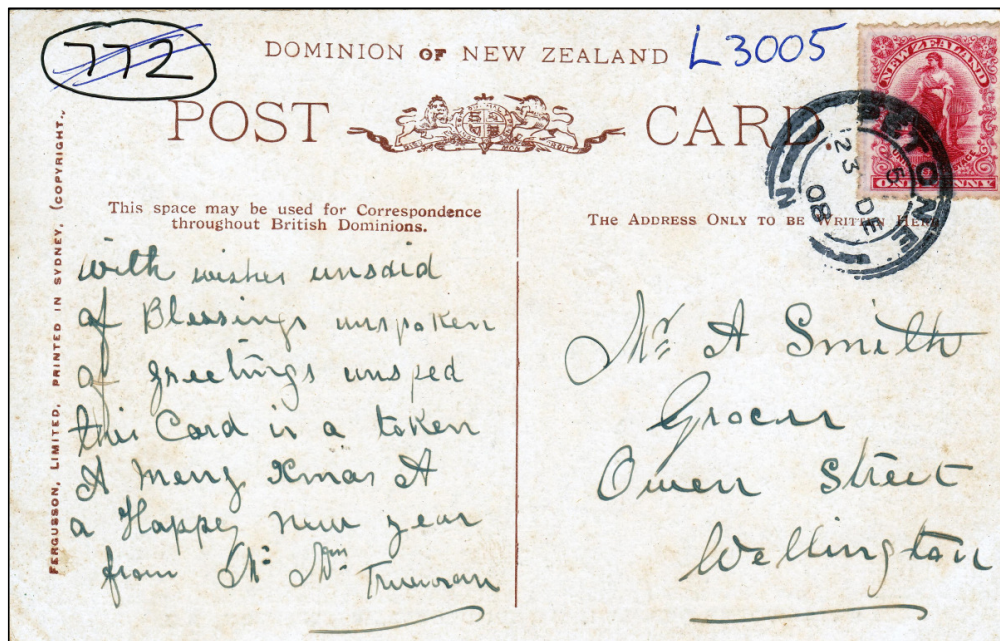 772
DOMINION OF NEW ZEALAND
L3005
POST CARD.
NEW ZEALAND
ONE PENNY
PETONE
5
23 DE
08
N Z
FERGUSSON, LIMITED, PRINTED IN SYDNEY, (COPYRIGHT.,
This space may be used for Correspondence
throughout British Dominions.
with wishes unsaid
of Blessings unspoken
of greetings unsped
this Card is a token
A Merry Xmas A
a Happy new year
from Mr Mrs
THE ADDRESS ONLY TO BE WRITTEN HERE
Mr A Smith
Grocer
Owen Street
Wellington